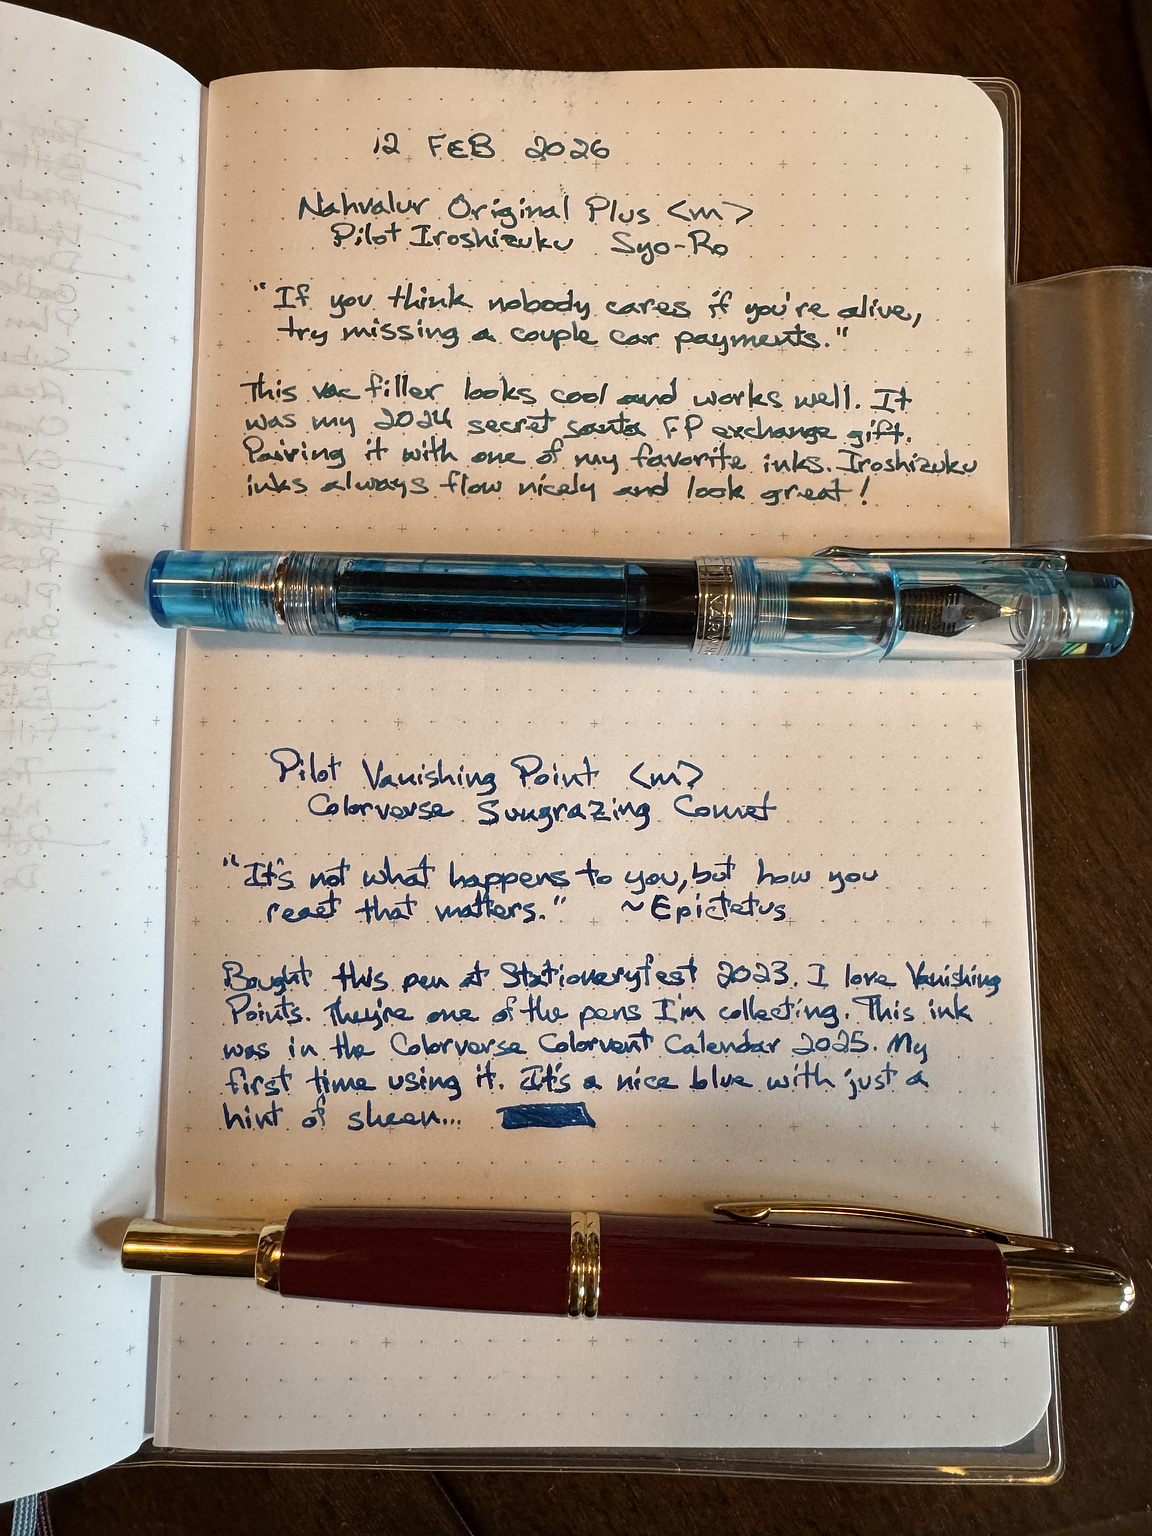 12 FEB 2026
Nahvalur Original Plus <m>
Pilot Iroshizuku Syo-Ro
"If you think nobody cares if you're alive,
try missing a couple car payments."
This vac filler looks cool and works well. It
was my 2024 secret santa FP exchange gift.
Pairing it with one of my favorite inks. Iroshizuku
inks always flow nicely and look great!
Pilot Vanishing Point <m>
Colorverse Sungrazing Comet
"It's not what happens to you, but how you
react that matters." ~Epictetus
Bought this pen at Stationeryfest 2023. I love Vanishing
Points. They're one of the pens I'm collecting. This ink
was in the Colorverse Colorvent Calendar 2025. My
first time using it. It's a nice blue with just a
hint of sheen...